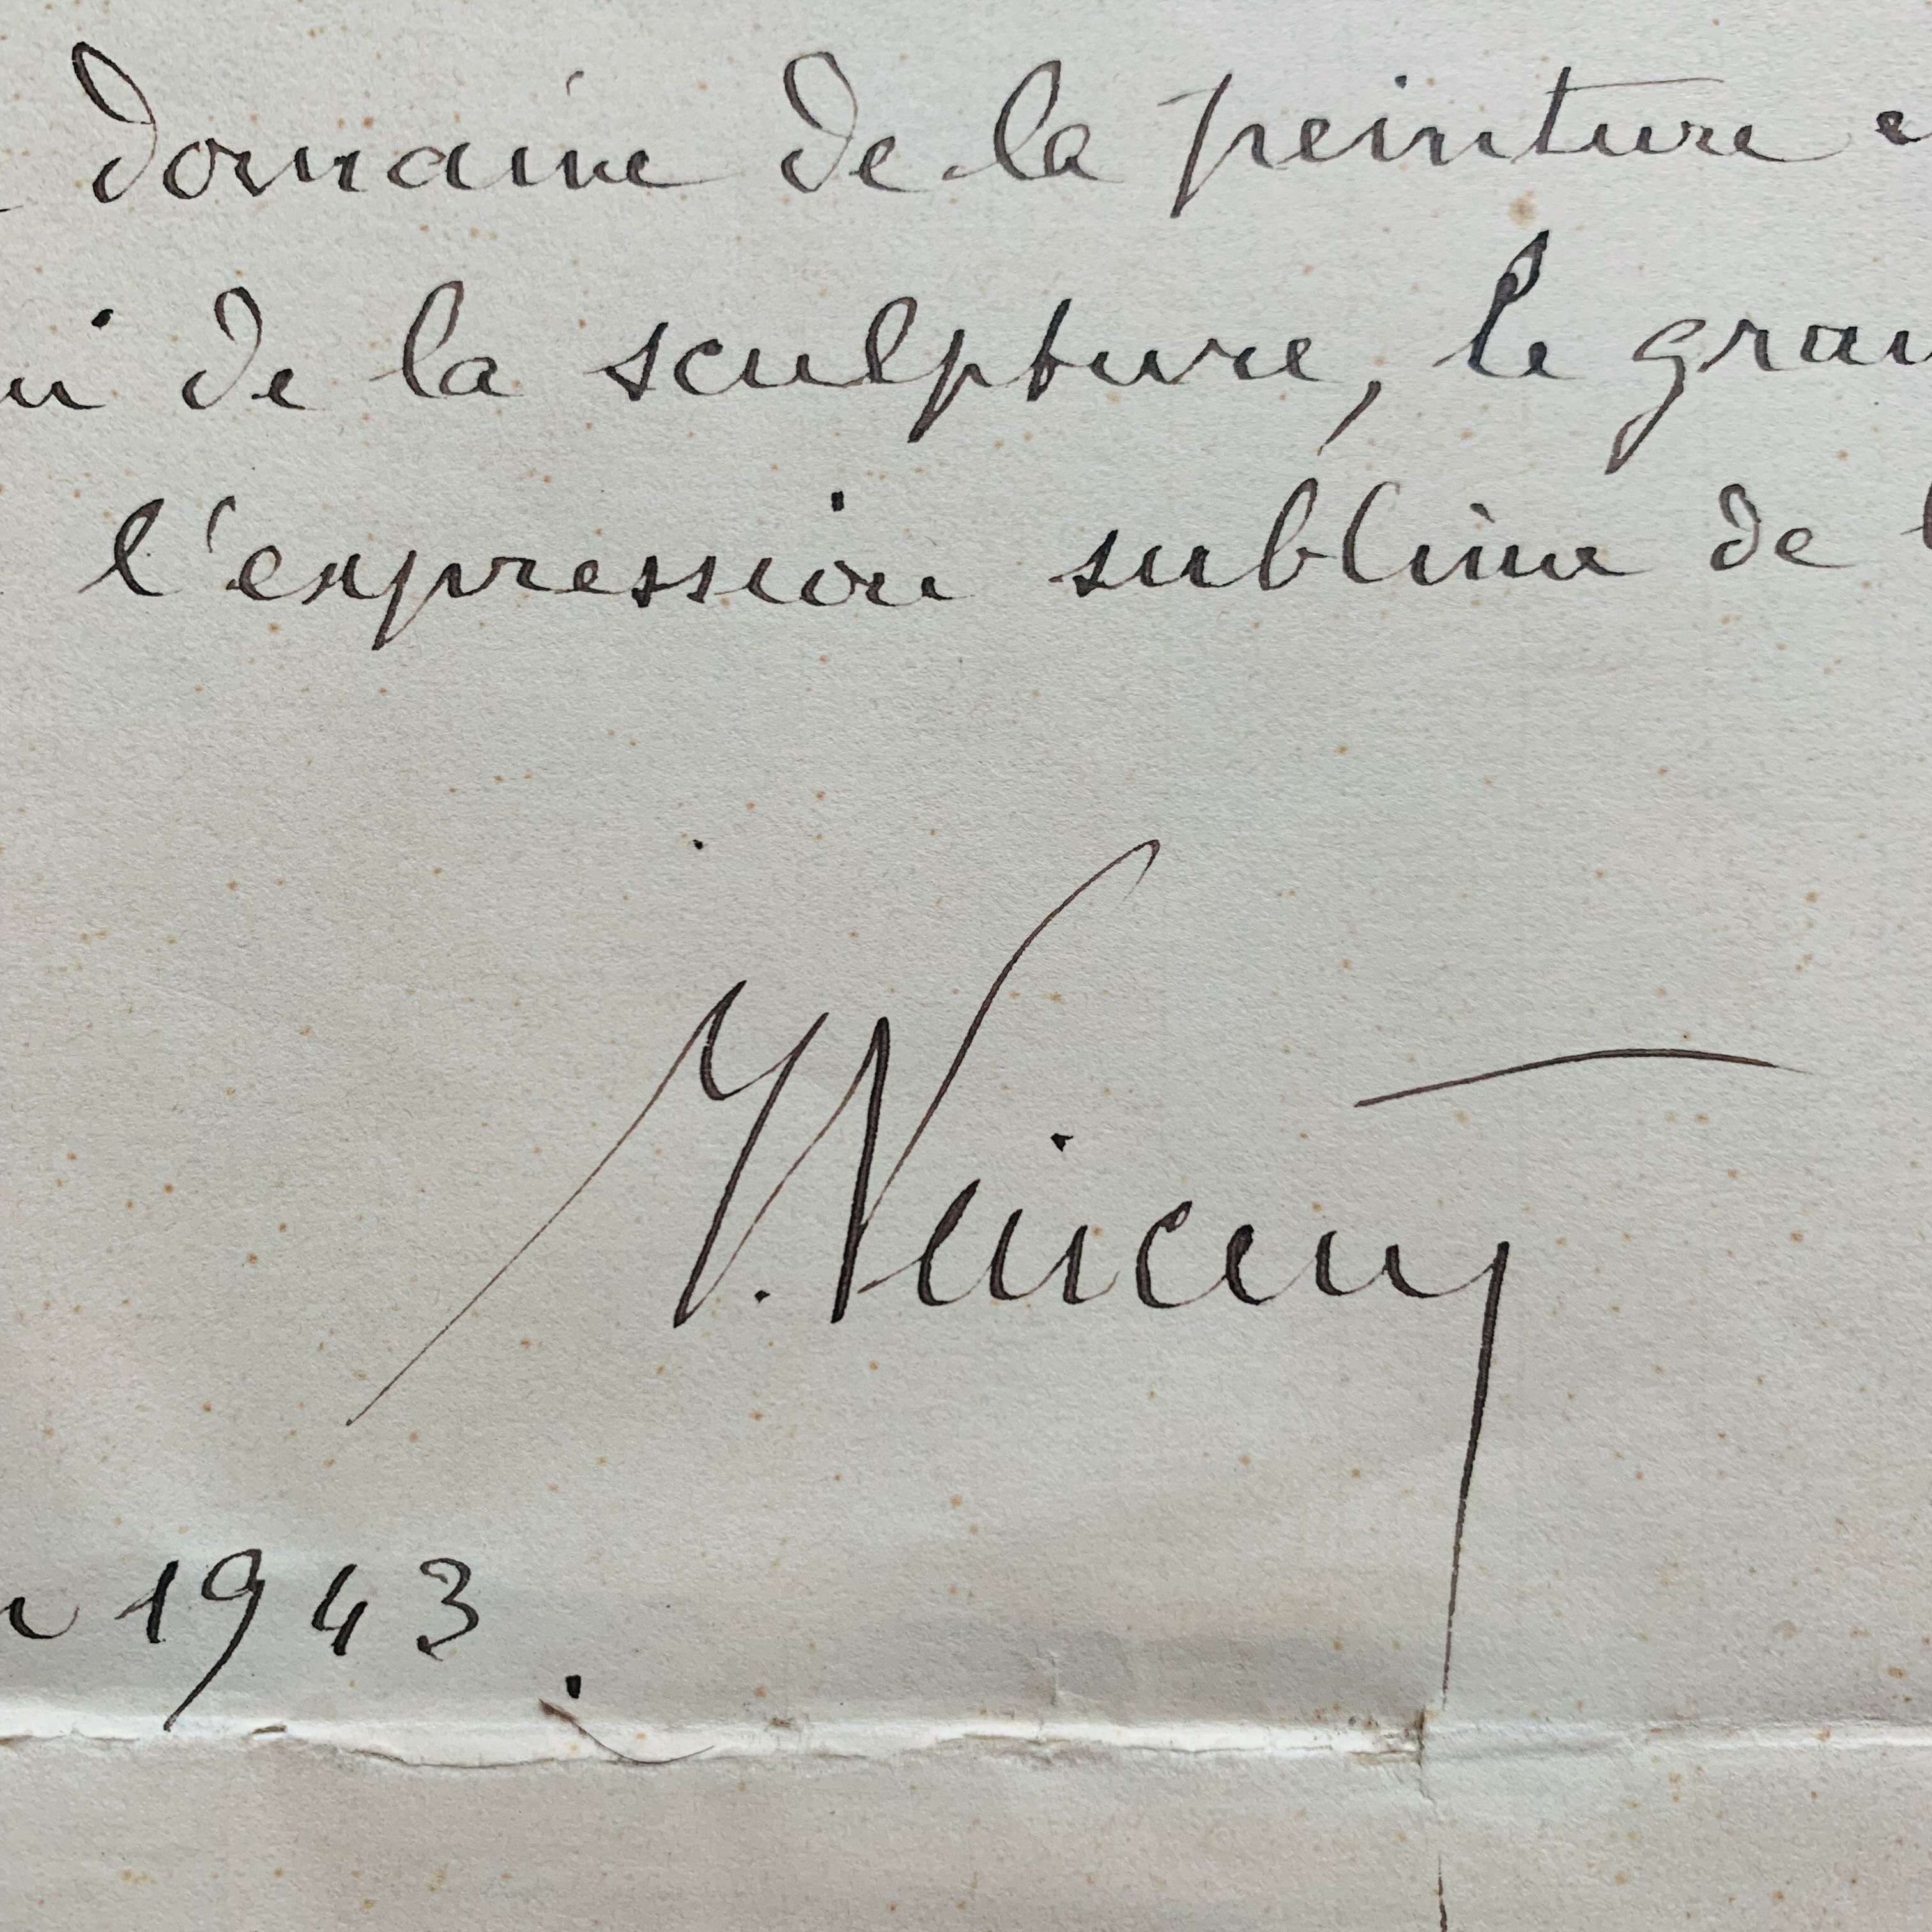 domaine de la peinture e
ui de la sculpture, le gran
l'expression sublime de l
Y. Vincent
1943.